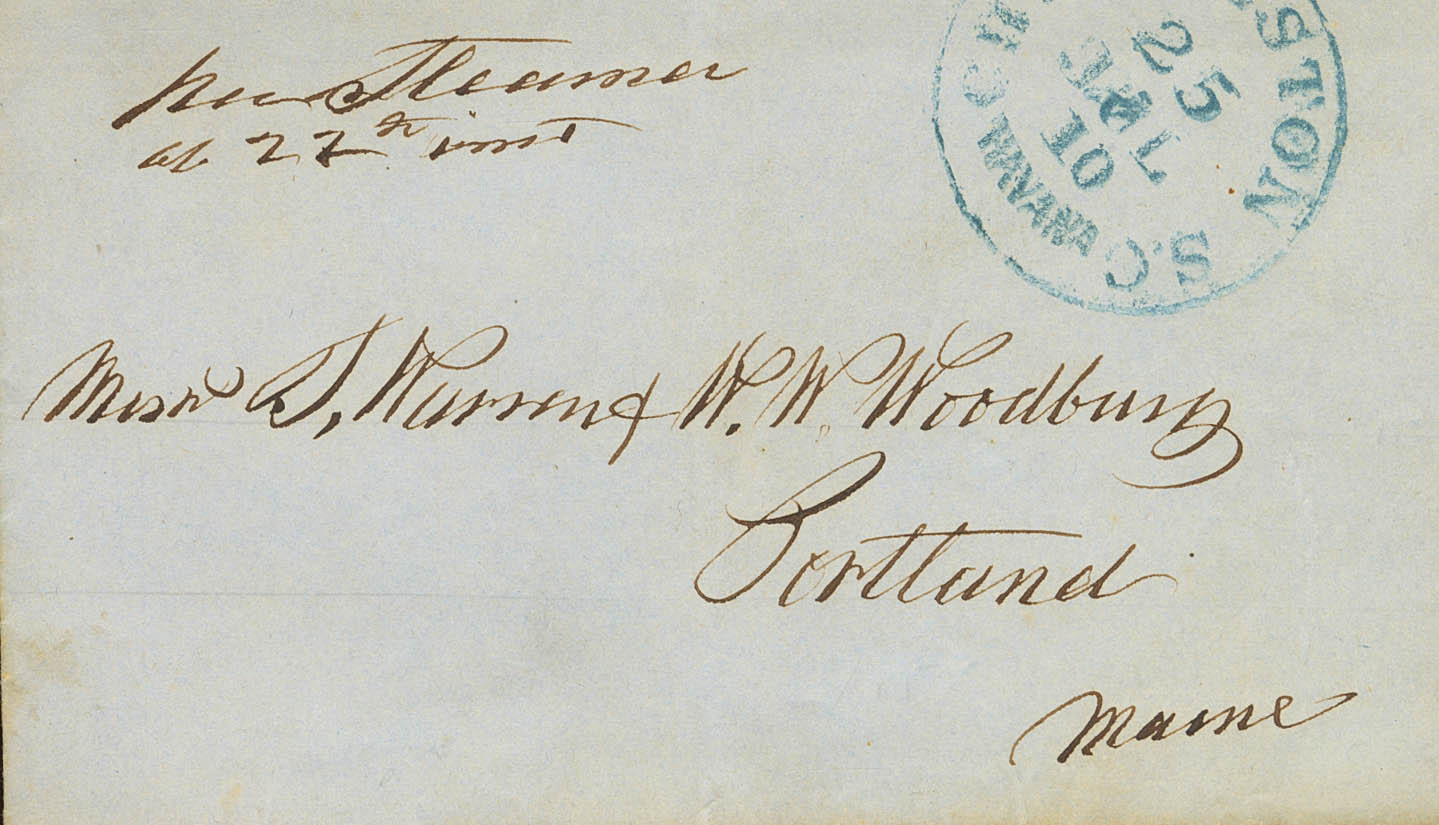 per Steamer
of 22ⁿ inst
CH STON S.C
25
JUL
10
HAVANA
Messrs J. Warren & W. W. Woodbury
Portland
Maine